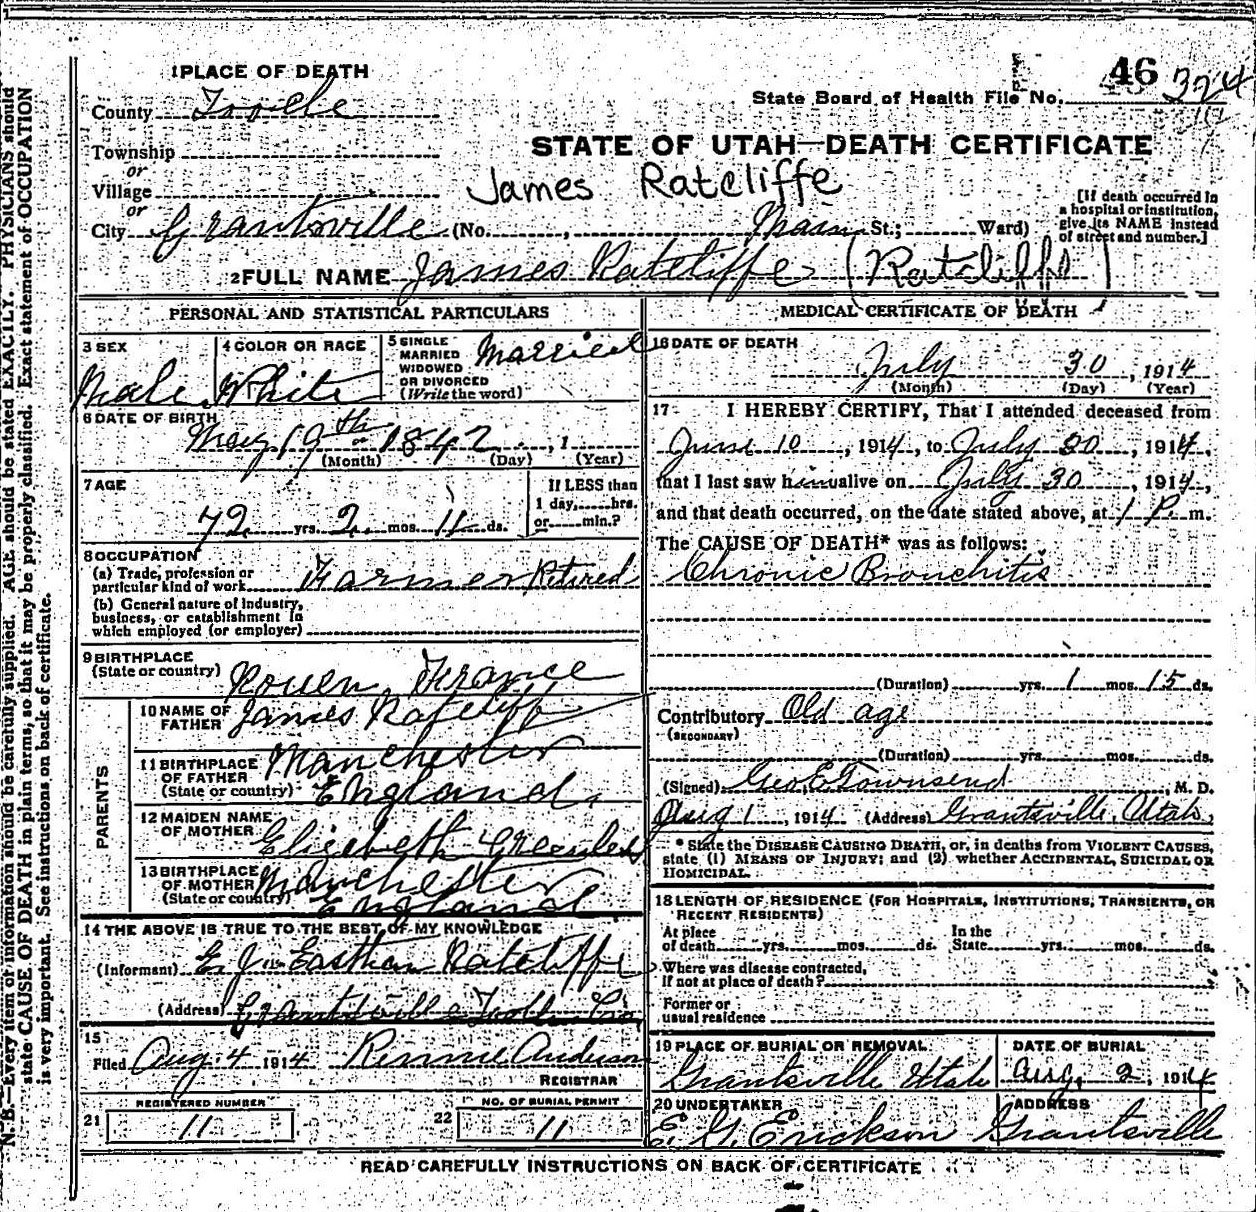 N. B.—Every item of information should be carefully supplied. AGE should be stated EXACTLY. PHYSICIANS should
state CAUSE OF DEATH in plain terms, so that it may be properly classified. Exact statement of OCCUPATION
is very important. See instructions on back of certificate.
1 PLACE OF DEATH
County Tooele
Township
or
Village
or
City Grantsville (No. , Main St.; Ward)
46 324
State Board of Health File No.
STATE OF UTAH—DEATH CERTIFICATE
James Ratcliffe
[If death occurred in
a hospital or institution,
give its NAME instead
of street and number.]
2 FULL NAME James Ratcliffe (Ratcliffe)
PERSONAL AND STATISTICAL PARTICULARS
3 SEX
Male
4 COLOR OR RACE
White
5 SINGLE
MARRIED
WIDOWED
OR DIVORCED
(Write the word)
Married
6 DATE OF BIRTH
May 19th 1842, 1
(Month) (Day) (Year)
7 AGE
72 yrs. 2 mos. 11 ds.
If LESS than
1 day, hrs.
or min.?
8 OCCUPATION
(a) Trade, profession or
particular kind of work Farmer Retired
(b) General nature of Industry,
business, or establishment in
which employed (or employer)
9 BIRTHPLACE
(State or country) Rouen, France
PARENTS
10 NAME OF
FATHER James Ratcliff
11 BIRTHPLACE
OF FATHER
(State or country) Manchester
England
12 MAIDEN NAME
OF MOTHER Elizebeth
13 BIRTHPLACE
OF MOTHER
(State or country) Manchester
England
14 THE ABOVE IS TRUE TO THE BEST OF MY KNOWLEDGE
(Informant) E. J. Eastham Ratcliffe
(Address) Grantsville Tooele Co
15
Filed Aug. 4 1914 Rennie Anderson
REGISTRAR
21 REGISTERED NUMBER
11
22 NO. OF BURIAL PERMIT
11
MEDICAL CERTIFICATE OF DEATH
16 DATE OF DEATH
July 30, 1914
(Month) (Day) (Year)
17 I HEREBY CERTIFY, That I attended deceased from
June 10, 1914, to July 30, 1914,
that I last saw him alive on July 30, 1914,
and that death occurred, on the date stated above, at 1 P. m.
The CAUSE OF DEATH* was as follows:
Chronic Bronchitis
(Duration) yrs. 1 mos. 15 ds.
Contributory Old age
(SECONDARY)
(Duration) yrs. mos. ds.
(Signed) Geo. E. Townsend, M. D.
Aug 1, 1914 (Address) Grantsville, Utah
* State the DISEASE CAUSING DEATH, or, in deaths from VIOLENT CAUSES,
state (1) MEANS OF INJURY; and (2) whether ACCIDENTAL, SUICIDAL OR
HOMICIDAL.
18 LENGTH OF RESIDENCE (FOR HOSPITALS, INSTITUTIONS, TRANSIENTS, OR
RECENT RESIDENTS)
At place
of death yrs. mos. ds.
In the
State yrs. mos. ds.
Where was disease contracted,
If not at place of death?
Former or
usual residence
19 PLACE OF BURIAL OR REMOVAL
Grantsville Utah
DATE OF BURIAL
Aug. 2, 1914
20 UNDERTAKER
E. G. Erickson
ADDRESS
Grantsville
READ CAREFULLY INSTRUCTIONS ON BACK OF CERTIFICATE